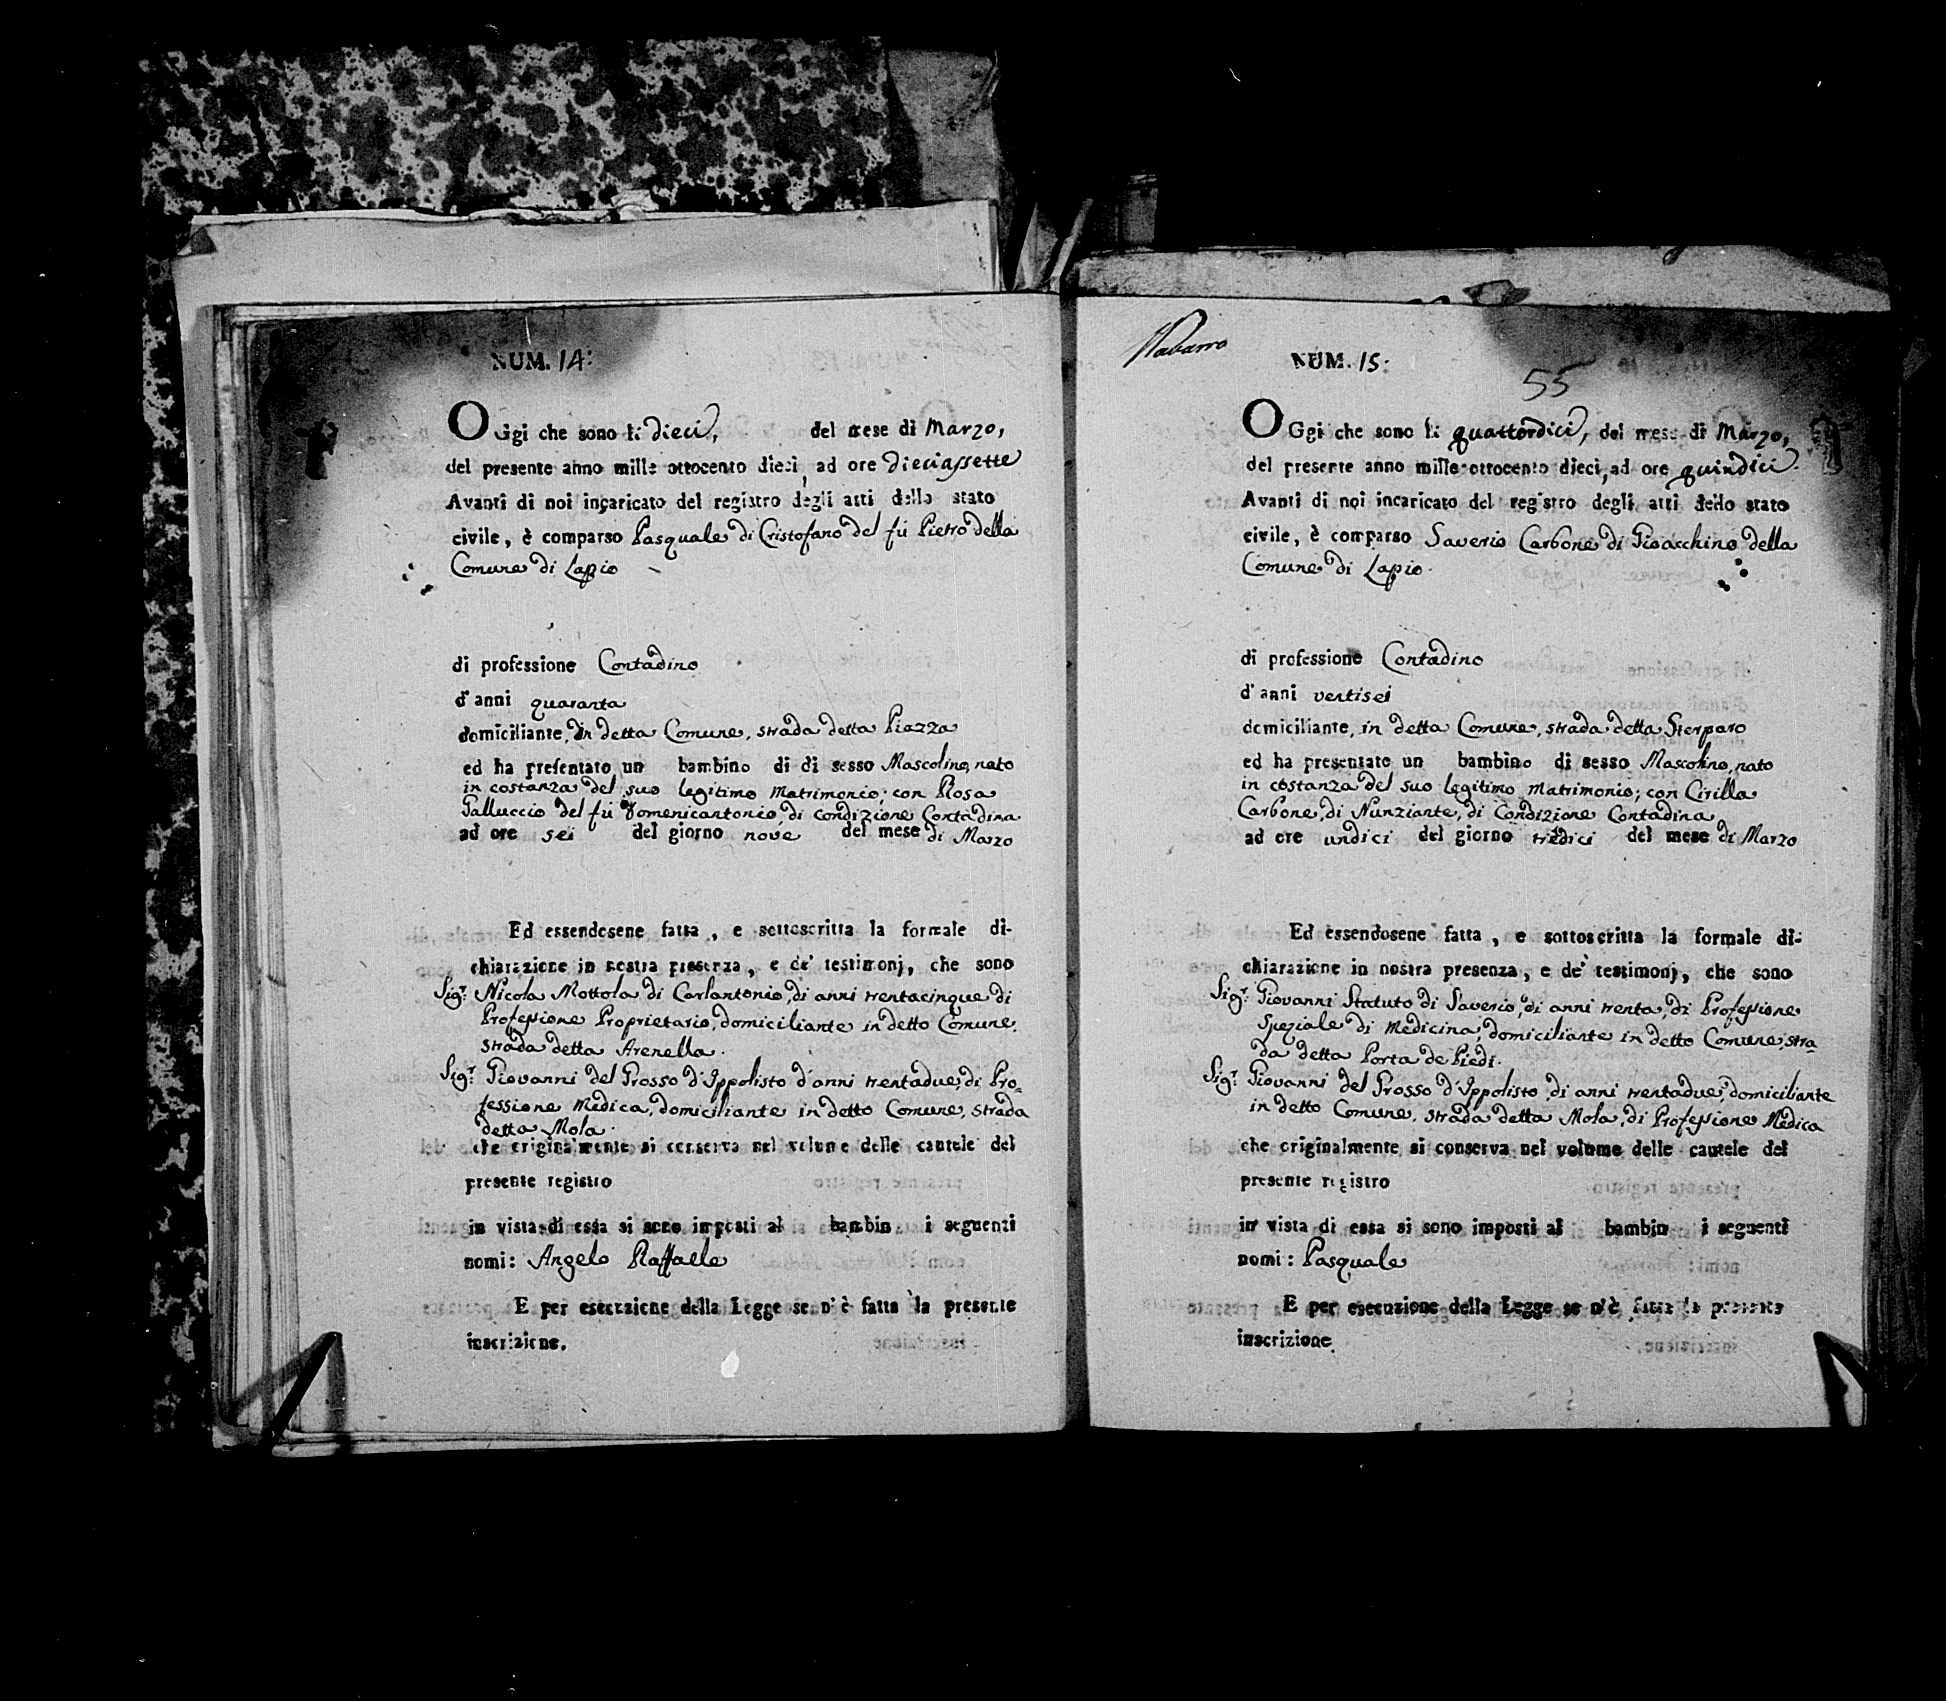 NUM. 14:
OGgi che sono li dieci, del mese di Marzo,
del presente anno mille ottocento dieci, ad ore dieciassette
Avanti di noi incaricato del registro degli atti dello stato
civile, è comparso Pasquale di Cristofano del fù Pietro della
Comune di Lapio
di professione Contadino
d'anni quaranta
domiciliante, in detta Comune, strada detta Piazza
ed ha presentato un bambino di di sesso Mascolino, nato
in costanza del suo legitimo Matrimonio; con Rosa
Galluccio del fù Domenicantonio, di condizione Contadina
ad ore sei del giorno nove del mese di Marzo
Ed essendosene fatta, e sottoscritta la formale di-
chiarazione in nostra presenza, e de' testimonj, che sono
Sigr. Nicola Mottola di Carlantonio, di anni trentacinque di
Professione Proprietario, domiciliante in detto Comune,
strada detta Arenella.
Sigr. Giovanni del Grosso d'Ippolisto d'anni trentadue, di Pro=
fessione Medica, domiciliante in detto Comune, strada
detta Mola.
che originalmente si conserva nel volume delle cautele del
presente registro
in vista di essa si sono imposti al bambin i seguenti
nomi: Angelo Raffaele
E per esecuzione della Legge se n'è fatta la presente
inscrizione.
Navarro
NUM. 15:
55
OGgi che sono li quattordici, del mese di Marzo,
del presente anno mille ottocento dieci, ad ore quindici.
Avanti di noi incaricato del registro degli atti dello stato
civile, è comparso Saverio Carbone di Gioacchino della
Comune di Lapio.
di professione Contadino
d'anni ventisei
domiciliante, in detta Comune, strada detta Sterparo
ed ha presentato un bambino di sesso Mascolino, nato
in costanza del suo legitimo matrimonio; con Cirilla
Carbone, di Nunziante, di Condizione Contadina
ad ore undici del giorno tredici del mese di Marzo
Ed essendosene fatta, e sottoscritta la formale di-
chiarazione in nostra presenza, e de' testimonj, che sono
Sigr. Giovanni Statuto di Saverio, di anni trenta, di Professione
Speziale di Medicina, domiciliante in detto Comune, stra=
da detta Porta de Piedi.
Sigr. Giovanni del Grosso d'Ippolisto, di anni trentadue, domiciliante
in detto Comune, strada detta Mola, di Professione Medica
che originalmente si conserva nel volume delle cautele del
presente registro
in vista di essa si sono imposti al bambin i seguenti
nomi: Pasquale
E per esecuzione della Legge se n'è fatta la presente
inscrizione.